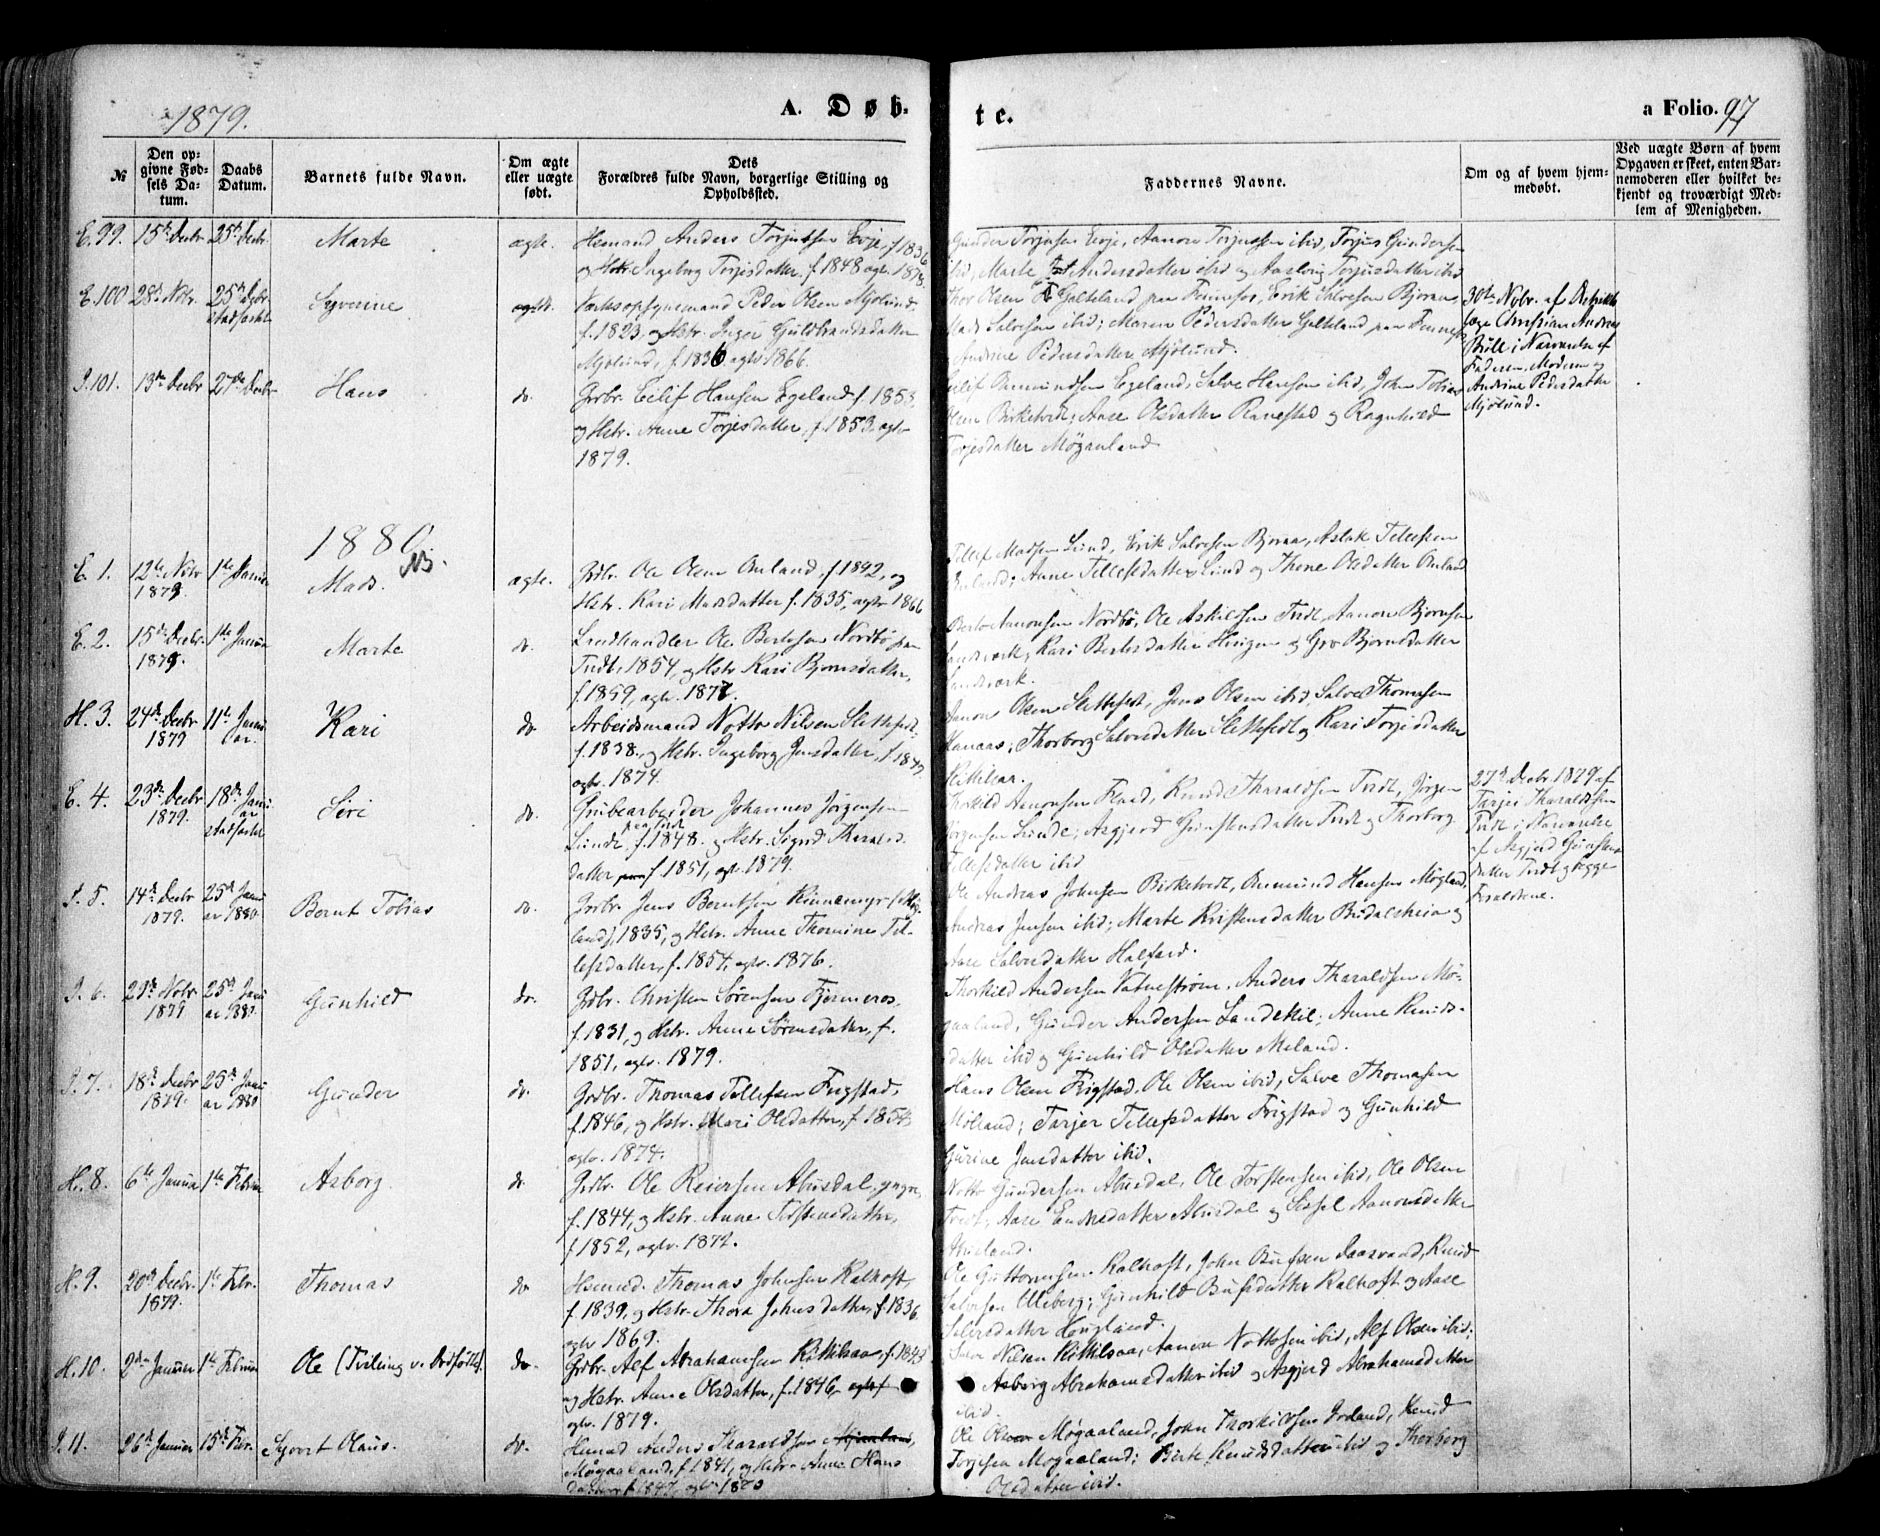 1879.
A. Døb-
te.
a Folio. 97
№
Den op-
givne Fød-
sels Da-
tum.
Daabs
Datum.
Barnets fulde Navn.
Om ægte
eller uægte
født.
Dets
Forældres fulde Navn, borgerlige Stilling og
Opholdssted.
Faddernes Navne.
Om og af hvem hjem-
medøbt.
Ved uægte Børn af hvem
Opgaven er skeet, enten Bar-
nemoderen eller hvilket be-
kjendt og troværdigt Med-
lem af Menigheden.
E. 99. 15de Decbr 25de Decbr. Marte ægte. Anders Torjussen Evje, f. 1836
og Hstr. Ingeborg Torjisdatter, f. 1848 agtv. 1878.
Gunder Torjusen Evje, Aanon Torjussen ibid, Torjus Gundersen
ibid, Marte Andersdatter ibid og Aaslaug Torjusdatter ibid
E. 100 28de Nobr. 25de Decbr. stadfæstet Syverine ægte. Værksopsynsmand Peder Olsen Mjølund,
f. 1823, og Hstr. Inger Guldbrandsdatter
Mjølund, f. 1836 agtv 1866.
Thor Olsen Galteland paa Fennefos, Erik Salvesen Bjoraa,
Mads Salvesen ibid; Maren Pedersdatter Galteland paa Fennefos
og Andrine Pedersdatter Mjølund.
30te Nobr. af Distrikts
læge Christian Andreas
Bull i Nærværelse af
Faderen, Moderen og
Andrine Pedersdatter
Mjølund.
I. 101. 13de Decbr 27de Decbr Hans do. Grbr. Eilif Hansen Egeland f. 1853,
og Hstr. Anne Torjesdatter, f. 1853. agtv
1879.
Eilif Aanundsen Egeland, Salve Hansen ibid, John Tobias
Olsen Birketvedt; Aase Olsdatter Ranestad og Ragnhild
Torjesdatter Møgaaland.
1880
E. 1. 12te Nobr 1879 1ste Januar Mads. ægte. Grbr. Ole Olsen Auland, f. 1892, og
Hstr. Kari Madsdatter f. 1835, agtv 1866
Tellef Madsen Lund, Erik Salvesen Bjoraa, Aslak Tellefsen
Auland; Anne Tellefsdatter Lund og Thone Olsdatter Auland
E. 2. 15de Decbr. 1879. 1ste Januar Marte do. Landhandler Ole Bertelsen Nordbø paa
Tvedt, 1854, og Hstr Kari Bjornsdatter,
f. 1859, agtv. 1877.
Berte Aanonsen Nordbø, Ole Askilsen Tvedt, Aanon Bjornsen
Landværk, Kari Bertesdatter Hoigen og Gro Bjornsdatter
Landværk.
H. 3. 24de Decbr 1879 11te Januar. Kari do. Arbeidsmand Notto Nilsen Slettefedt,
f. 1838, og Hstr. Ingeborg Jensdatter, f. 1847,
agtv. 1874.
Aanon Olsen Slettefedt, Jens Olsen ibid, Salve Thomasen
Kanaas; Thorborg Salvesdatter Slettefedt og Kari Torjesdatter
Kittilsaa.
E. 4. 23de Decbr 1879. 18de Januar stadfæstet Siri do. Grubearbeider Johannes Jørgensen
Lunde paa Tvedt, f. 1848. og Hstr. Sigrid Tharalds
datter f. 1851, agtv. 1879.
Thorkild Aanonsen Flaad, Knud Tharaldsen Tvedt, Jørgen
Jørgensen Lunde; Asgjerd Gunstensdatter Tvedt og Thorborg
Tellefsdatter ibid
27de Decbr. 1879 af
Tarjei Tharaldsen
Tvedt i Nærværelse
af Asgjerd Gunstens
datter Tvedt og begge
Forældrene.
I. 5. 14de Decbr 1879. 25de Januar 1880. Bernt Tobias do. Grbr. Jens Berntsen Kinnemyr (Møg-
land), 1835, og Hstr. Anne Thomine Tel-
lefsdatter, f. 1854, agtv. 1876.
Ole Andreas Johnsen Birketvedt, Aanund Hansen Møgland,
Andreas Jensen ibid; Marte Kristensdatter Budalsheia og
Aase Salvesdatter Halfard.
I. 6. 29de Nobr 1879 25de Januar 1880. Gunhild do. Grbr. Christen Sørensen Fjermeros,
f. 1831, og Hstr. Anne Sørensdatter, f.
1851, agtv. 1879.
Thorkild Andersen Vatnestrøm, Anders Tharaldsen Mø-
gaaland, Gunder Andersen Landeskil; Anne Knuds-
datter ibid og Gunhild Olsdatter Meland.
I. 7. 18de Decbr 1879. 25de Januar 1880 Gunder do. Grbr. Thomas Tellefsen Frigstad,
f. 1846, og Hstr. Mari Olsdatter, f. 1854
agtv. 1874.
Hans Olsen Frigstad, Ole Olsen ibid, Salve Thomasen
Mølland; Tarjer Tellefsdatter Frigstad og Gunhild
Gurine Jensdatter ibid.
H. 8. 6te Januar 1ste Februar Asborg do. Grbr. Ole Reiersen Abusdal, yngre,
f. 1844, og Hstr. Anne Torstensdatter,
f. 1852, agtv. 1872.
Notto Gundersen Abusdal, Ole Torstensen ibid, Ole Olsen
Tvedt; Aase Endresdatter Abusdal og Sissel Aanonsdatter
H. 9. 20de Decbr. 1879. 1ste Febr. Thomas do. Husmd. Thomas Johnsen Kalhoft,
f. 1839, og Hstr. Thora Johnsdatter, f. 1836,
agtv 1869.
Ole Guttormsen Kalhoft, John Buesen Daasvand, Knud
Salvesen Uleberg; Gunhild Buesdatter Kalhoft og Aase
Salvesdatter Hougland.
H. 10. 2den Januar 1ste Februar Ole (Tvilling v. Dødfødte) do. Grbr. Alf Abrahamsen Kittilsaa, f. 1843
og Hstr. Anne Olsdatter, f. 1846,
agtv. 1879.
Salve Nilsen Kittilsaa, Aanon Nottosen ibid, Alf Olsen ibid;
Asborg Abrahamsdatter ibid og Asgjerd Abrahamsdatter
ibid.
I. 11. 26de Januar 15de Febr. Syvert Olaus. do. Husmd Anders Tharaldsen
Møgaaland, f. 1841, og Hstr Anne Hans
datter f. 1847, agtv 1880
Ole Olsen Møgaaland, John Thorkildsen Iveland, Knud
Torjesen Møgaaland; Berte Knudsdatter ibid og Thorborg
Olsdatter ibid.